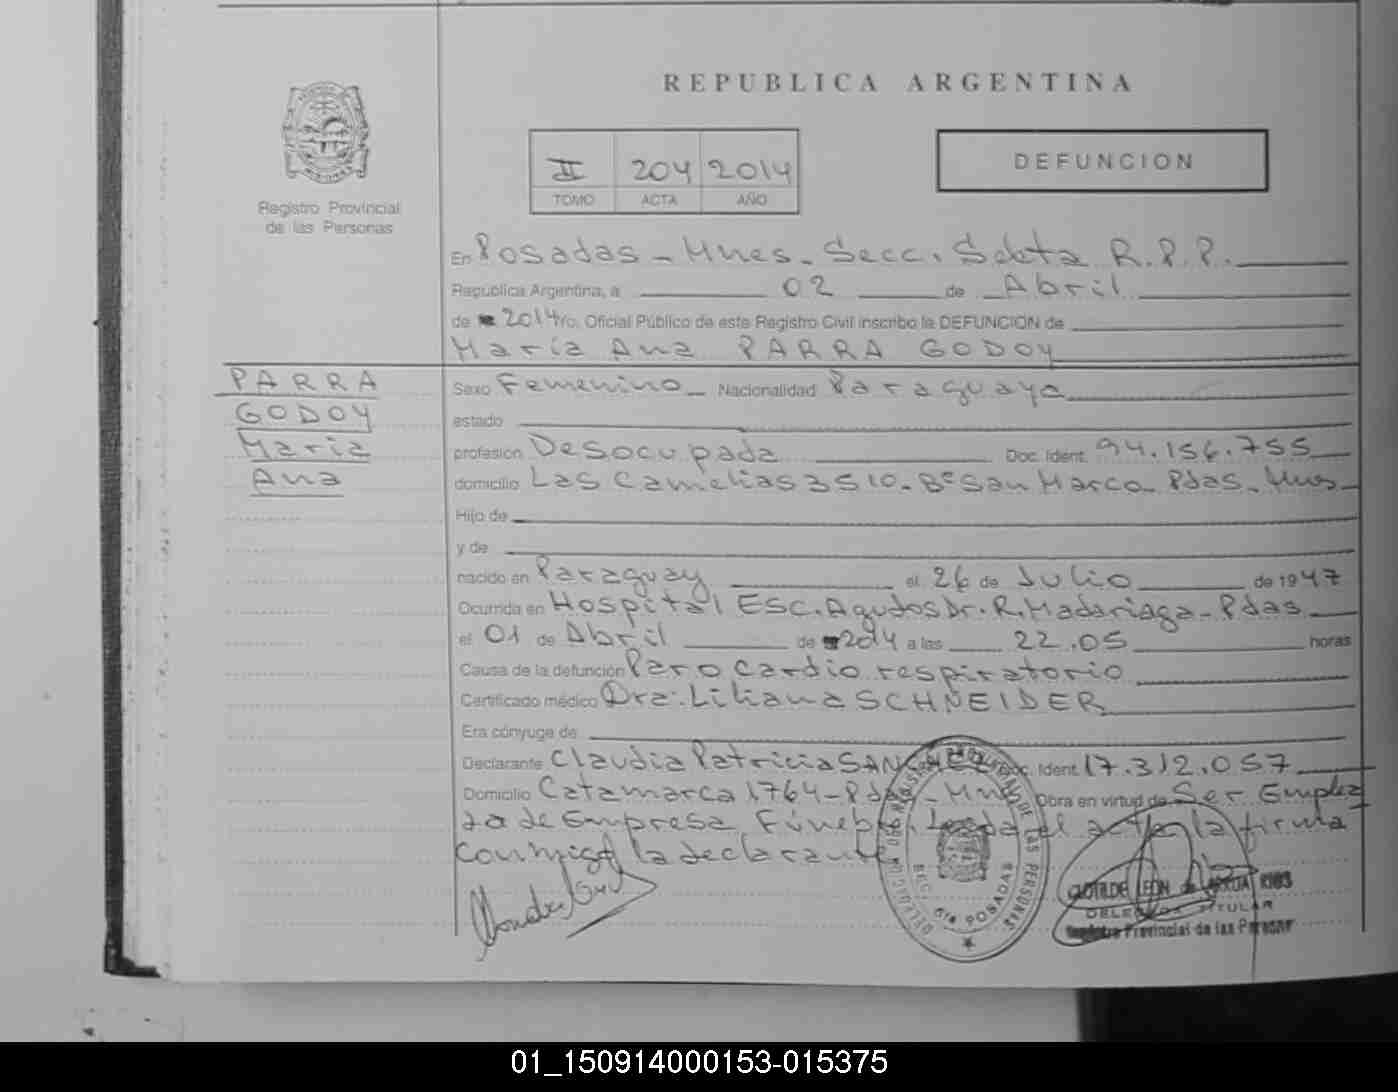 REPUBLICA ARGENTINA
Registro Provincial
de las Personas
II 204 2014
TOMO ACTA AÑO
DEFUNCION
En Posadas - Mnes. Secc. Sexta R.P.P.
República Argentina, a 02 de Abril
de 2014 Yo, Oficial Público de este Registro Civil inscribo la DEFUNCION de
María Ana PARRA GODOY
PARRA
GODOY
María
Ana
Sexo Femenino Nacionalidad Paraguaya
estado
profesión Desocupada Doc. Ident. 94.156.755
domicilio Las Camelias 3510 - Bº San Marco - Pdas - Mnes -
Hijo de
y de
nacido en Paraguay el 26 de Julio de 1947
Ocurrida en Hospital ESC. Agudos Dr. R. Madariaga - Pdas
el 01 de Abril de 2014 a las 22.05 horas
Causa de la defunción Paro cardio respiratorio
Certificado médico Dra. Liliana SCHNEIDER
Era cónyuge de
Declarante Claudia Patricia SANCHEZ Doc. Ident. 17.312.057
Domicilio Catamarca 1764 - Pdas - Mnes Obra en virtud de Ser Emplea
da de Empresa Fúnebre. Leída el acta la firma
conmigo la declarante.
SEC. 6ta POSADAS
CLOTILDE LEÓN de RIOS
DELEGADA TITULAR
Registro Provincial de las Personas
01_150914000153-015375